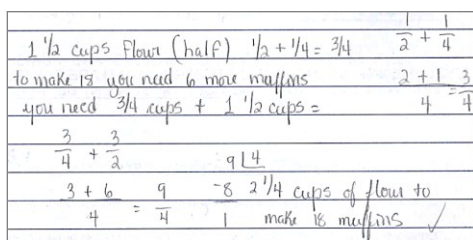 1 1/2 cups flour (half) 1/2 + 1/4 = 3/4
1/2 + 1/4
to make 18 you need 6 more muffins
2 + 1/4 = 3/4
you need 3/4 cups + 1 1/2 cups =
3/4 + 3/2
3 + 6/4 = 9/4
9 4
-8 2 1/4 cups of flour to
1 make 18 muffins ✓